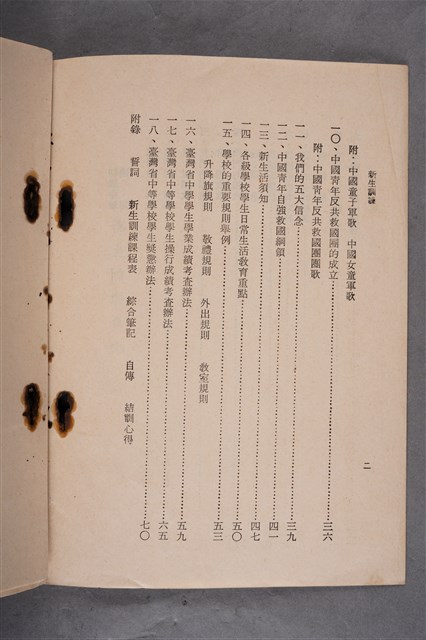 新生訓練
附：中國童子軍歌　中國女童軍歌
一〇、中國青年反共救國團的成立……三六
附：中國青年反共救國團團歌
一一、我們的五大信念……三九
一二、中國青年自強救國綱領……四一
一三、新生活須知……四七
一四、各級學校學生日常生活教育重點……五〇
一五、學校的重要規則舉例……五三
升降旗規則　敬禮規則　外出規則　教室規則
一六、臺灣省中學學生學業成績考查辦法……五九
一七、臺灣省中等學校學生操行成績考查辦法……六五
一八、臺灣省中等學校學生獎懲辦法……七〇
附錄　誓詞　新生訓練課程表　綜合筆記　自傳　結訓心得
二